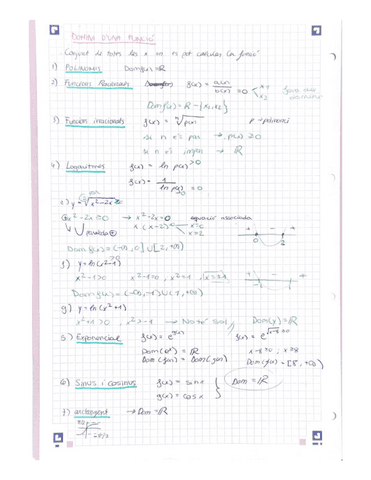 DOMINI D'UNA FUNCIÓ
Conjunt de totes les x on es pot calcular la funció
1) Polinomis Dom f(x) = ℝ
2) Funcions Racionals f(x) = = 0 < x1 x2
Dom f(x) = ℝ - {x1, x2}
3) Funcions irracionals f(x) = ⁿ√p(x) p → polinomi
si n és parell → p(x) ≥ 0
si n és imparell → ℝ
4) Logaritmes f(x) = ln p(x) > 0
f(x) =
e) y = √x²-2x
x²-2x ≥ 0 → x²-2x = 0 equació associada
x(x-2) = 0 x=0 x=2
Dom f(x) = (-∞, 0] ∪ [2, +∞)
f) y = ln(x²-1)
x²-1>0 x²-1=0, x²=1, x=±1
Dom f(x) = (-∞, -1) ∪ (1, +∞)
g) y = ln(x²+1)
x²+1>0, x²>-1 → No té sol. Dom(y) = ℝ
5) Exponencial f(x) = f(x) = e^√x-8
Dom(eˣ) = ℝ x-8≥0, x≥8
Dom f(x) = [8, +∞)
6) Sinus i cosinus f(x) = sin x
g(x) = cos x } Dom = ℝ
7) arctangent → Dom = ℝ